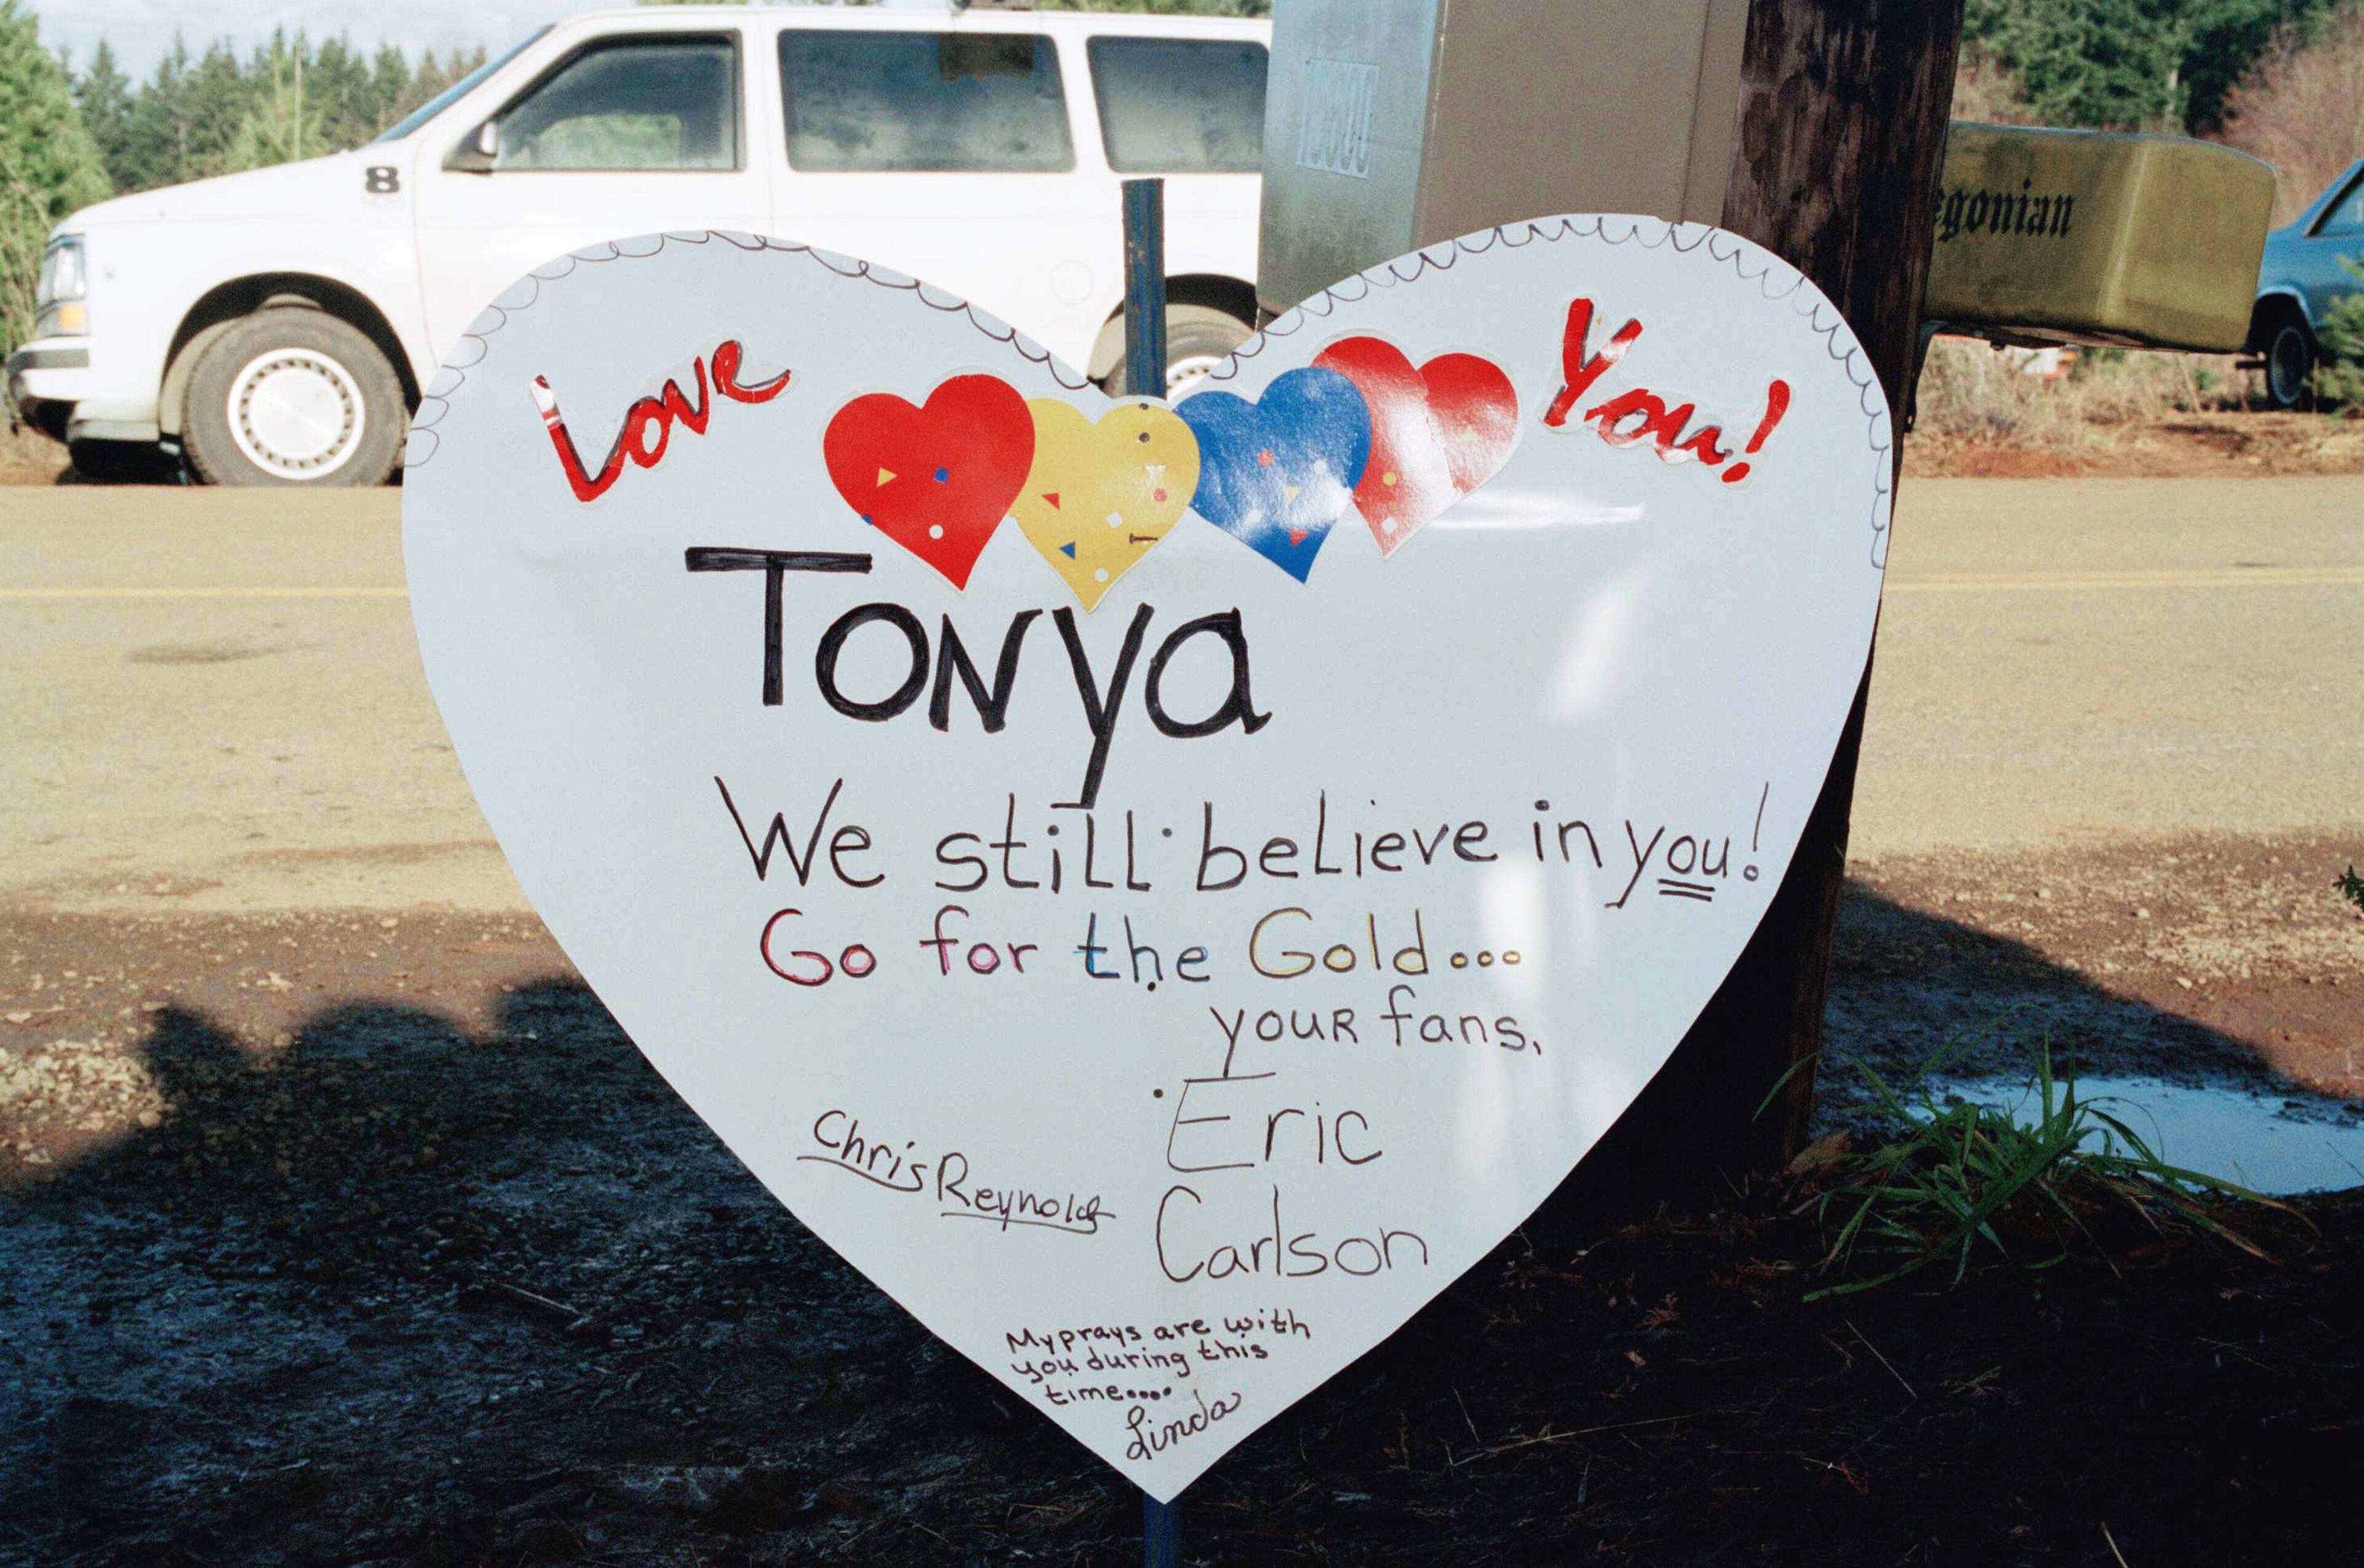 8
15500
egonian
Love You!
Tonya
We still believe in you!
Go for the Gold...
your fans,
Eric
Carlson
Chris Reynolds
My prays are with
you during this
time....
Linda